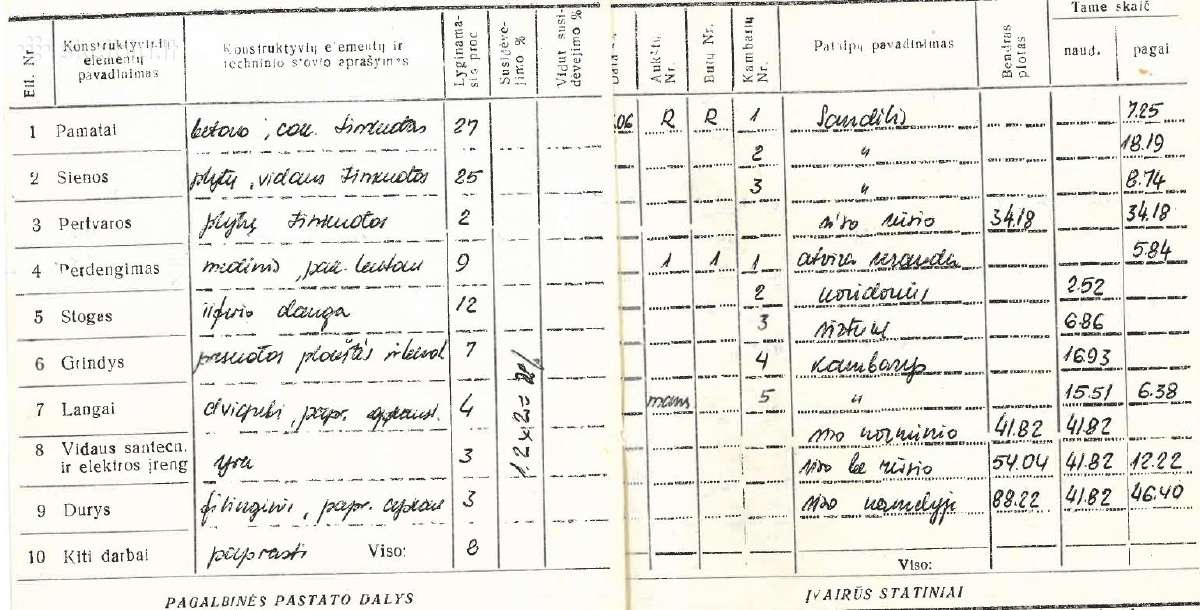 Eil. Nr. Konstruktyvinių elementų pavadinimas Konstruktyvių elementų ir techninio stovio aprašymas Lyginamasis proc Susidėvėjimo % Vidut susidėvėjimo %
1 Pamatai betono, cok. tinkuotas 27
2 Sienos plytų, vidaus tinkuotos 25
3 Pertvaros plytų tinkuotos 2
4 Perdengimas medinis, pak. lentom 9
5 Stogas šiferio danga 12
6 Grindys presuotos plokštės 7
7 Langai dvigubi, papr. 4
8 Vidaus santecn. ir elektros įreng yra 3
9 Durys filinginės, papr. 3
10 Kiti darbai paprasti Viso: 8
1.2x2=
PAGALBINĖS PASTATO DALYS
Data Aukštų Nr. Butų Nr. Kambarių Nr. Patalpų pavadinimas Bendras plotas Tame skaič
naud. pagal
.06 R R 1 Sandėlis 7.25
2 " 18.19
3 " 8.74
viso rūsio 34.18 34.18
1 1 1 atvira veranda 5.84
2 koridorius 2.52
3 virtuvė 6.86
4 kambarys 16.93
mans 5 " 15.51 6.38
viso norminio 41.82 41.82
viso be rūsio 54.04 41.82 12.22
viso namelyje 88.22 41.82 46.40
Viso:
ĮVAIRŪS STATINIAI